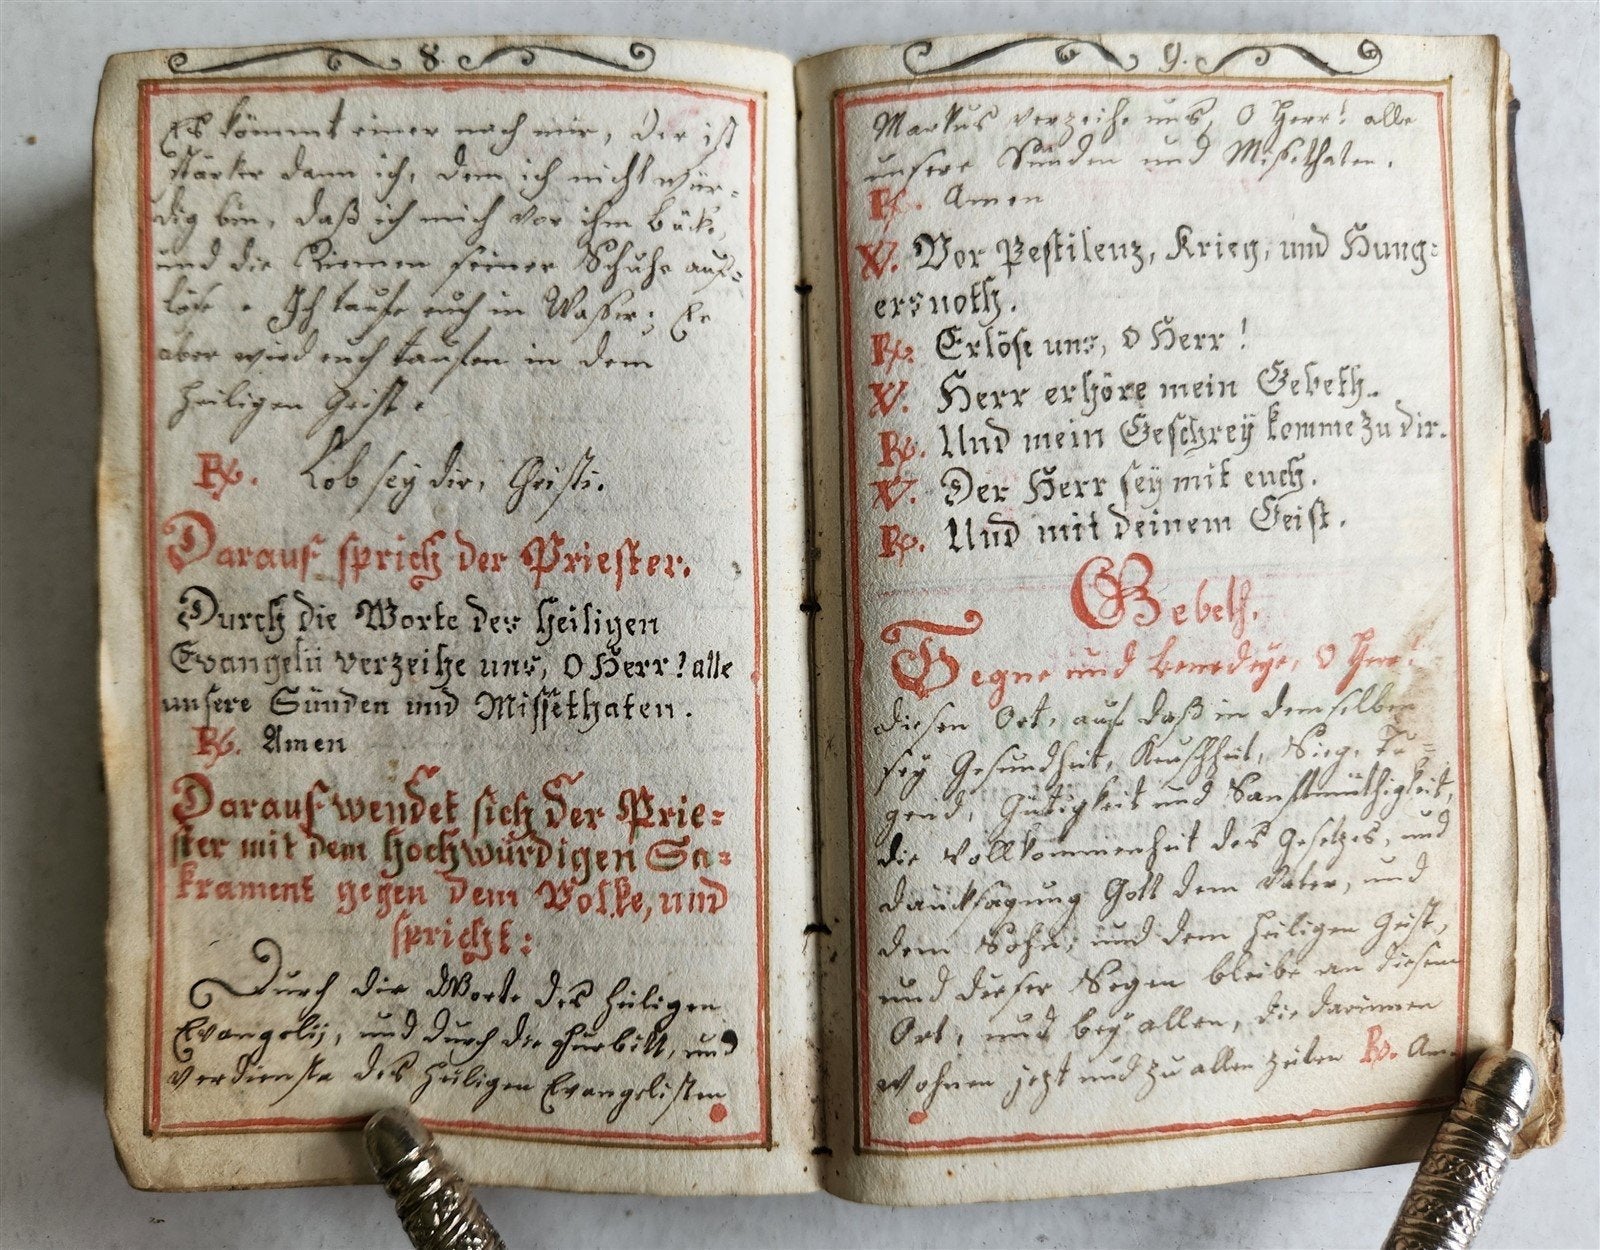 8.
Es kömmt einer nach mir, der ist
stärker dann ich, dem ich nicht wür=
dig bin, daß ich mich vor ihm bücke,
und die Riemen seiner Schuhe auf=
löse. Ich taufe euch in Wasser; Er
aber wird euch taufen in dem
heiligen Geist.
R. Lob sey dir, Christi.
Darauf sprich der Priester.
Durch die Worte des heiligen
Evangelii verzeihe uns, O Herr! alle
unsere Sünden und Missethaten.
R. Amen
Darauf wendet sich der Prie=
ster mit dem hochwürdigen Sa=
krament gegen dem Volke, und
spricht:
Durch die Worte des heiligen
Evangelij, und durch die Fürbitt, und
verdienste des heiligen Evangelisten
9.
Markus verzeihe uns, O Herr! alle
unsere Sünden und Missethaten.
R. Amen
V. Vor Pestilenz, Krieg, und Hung=
ersnoth.
R. Erlöse uns, O Herr!
V. Herr erhöre mein Gebeth.
R. Und mein Geschrey komme zu dir.
V. Der Herr sey mit euch.
R. Und mit deinem Geist.
Gebeth.
Segne und benedeye, O Herr!
diesen Ort, auf daß in demselben
sey Gesundheit, Keuschheit, Sieg, Tu=
gend, Gütigkeit und Sanftmüthigkeit,
die Vollkommenheit des Gesetzes, und
dancksagung Gott dem Vater, und
dem Sohn, und dem heiligen Geist,
und dieser Segen bleibe an diesem
Ort, und bey allen, die darinnen
wohnen jezt und zu allen zeiten R. Am.